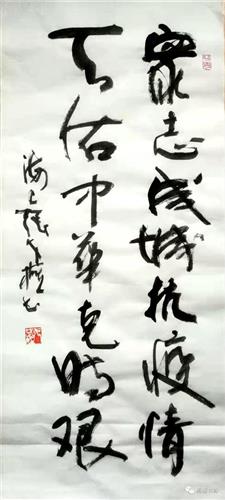 众志成城抗疫情
天佑中华克时艰
海上
书